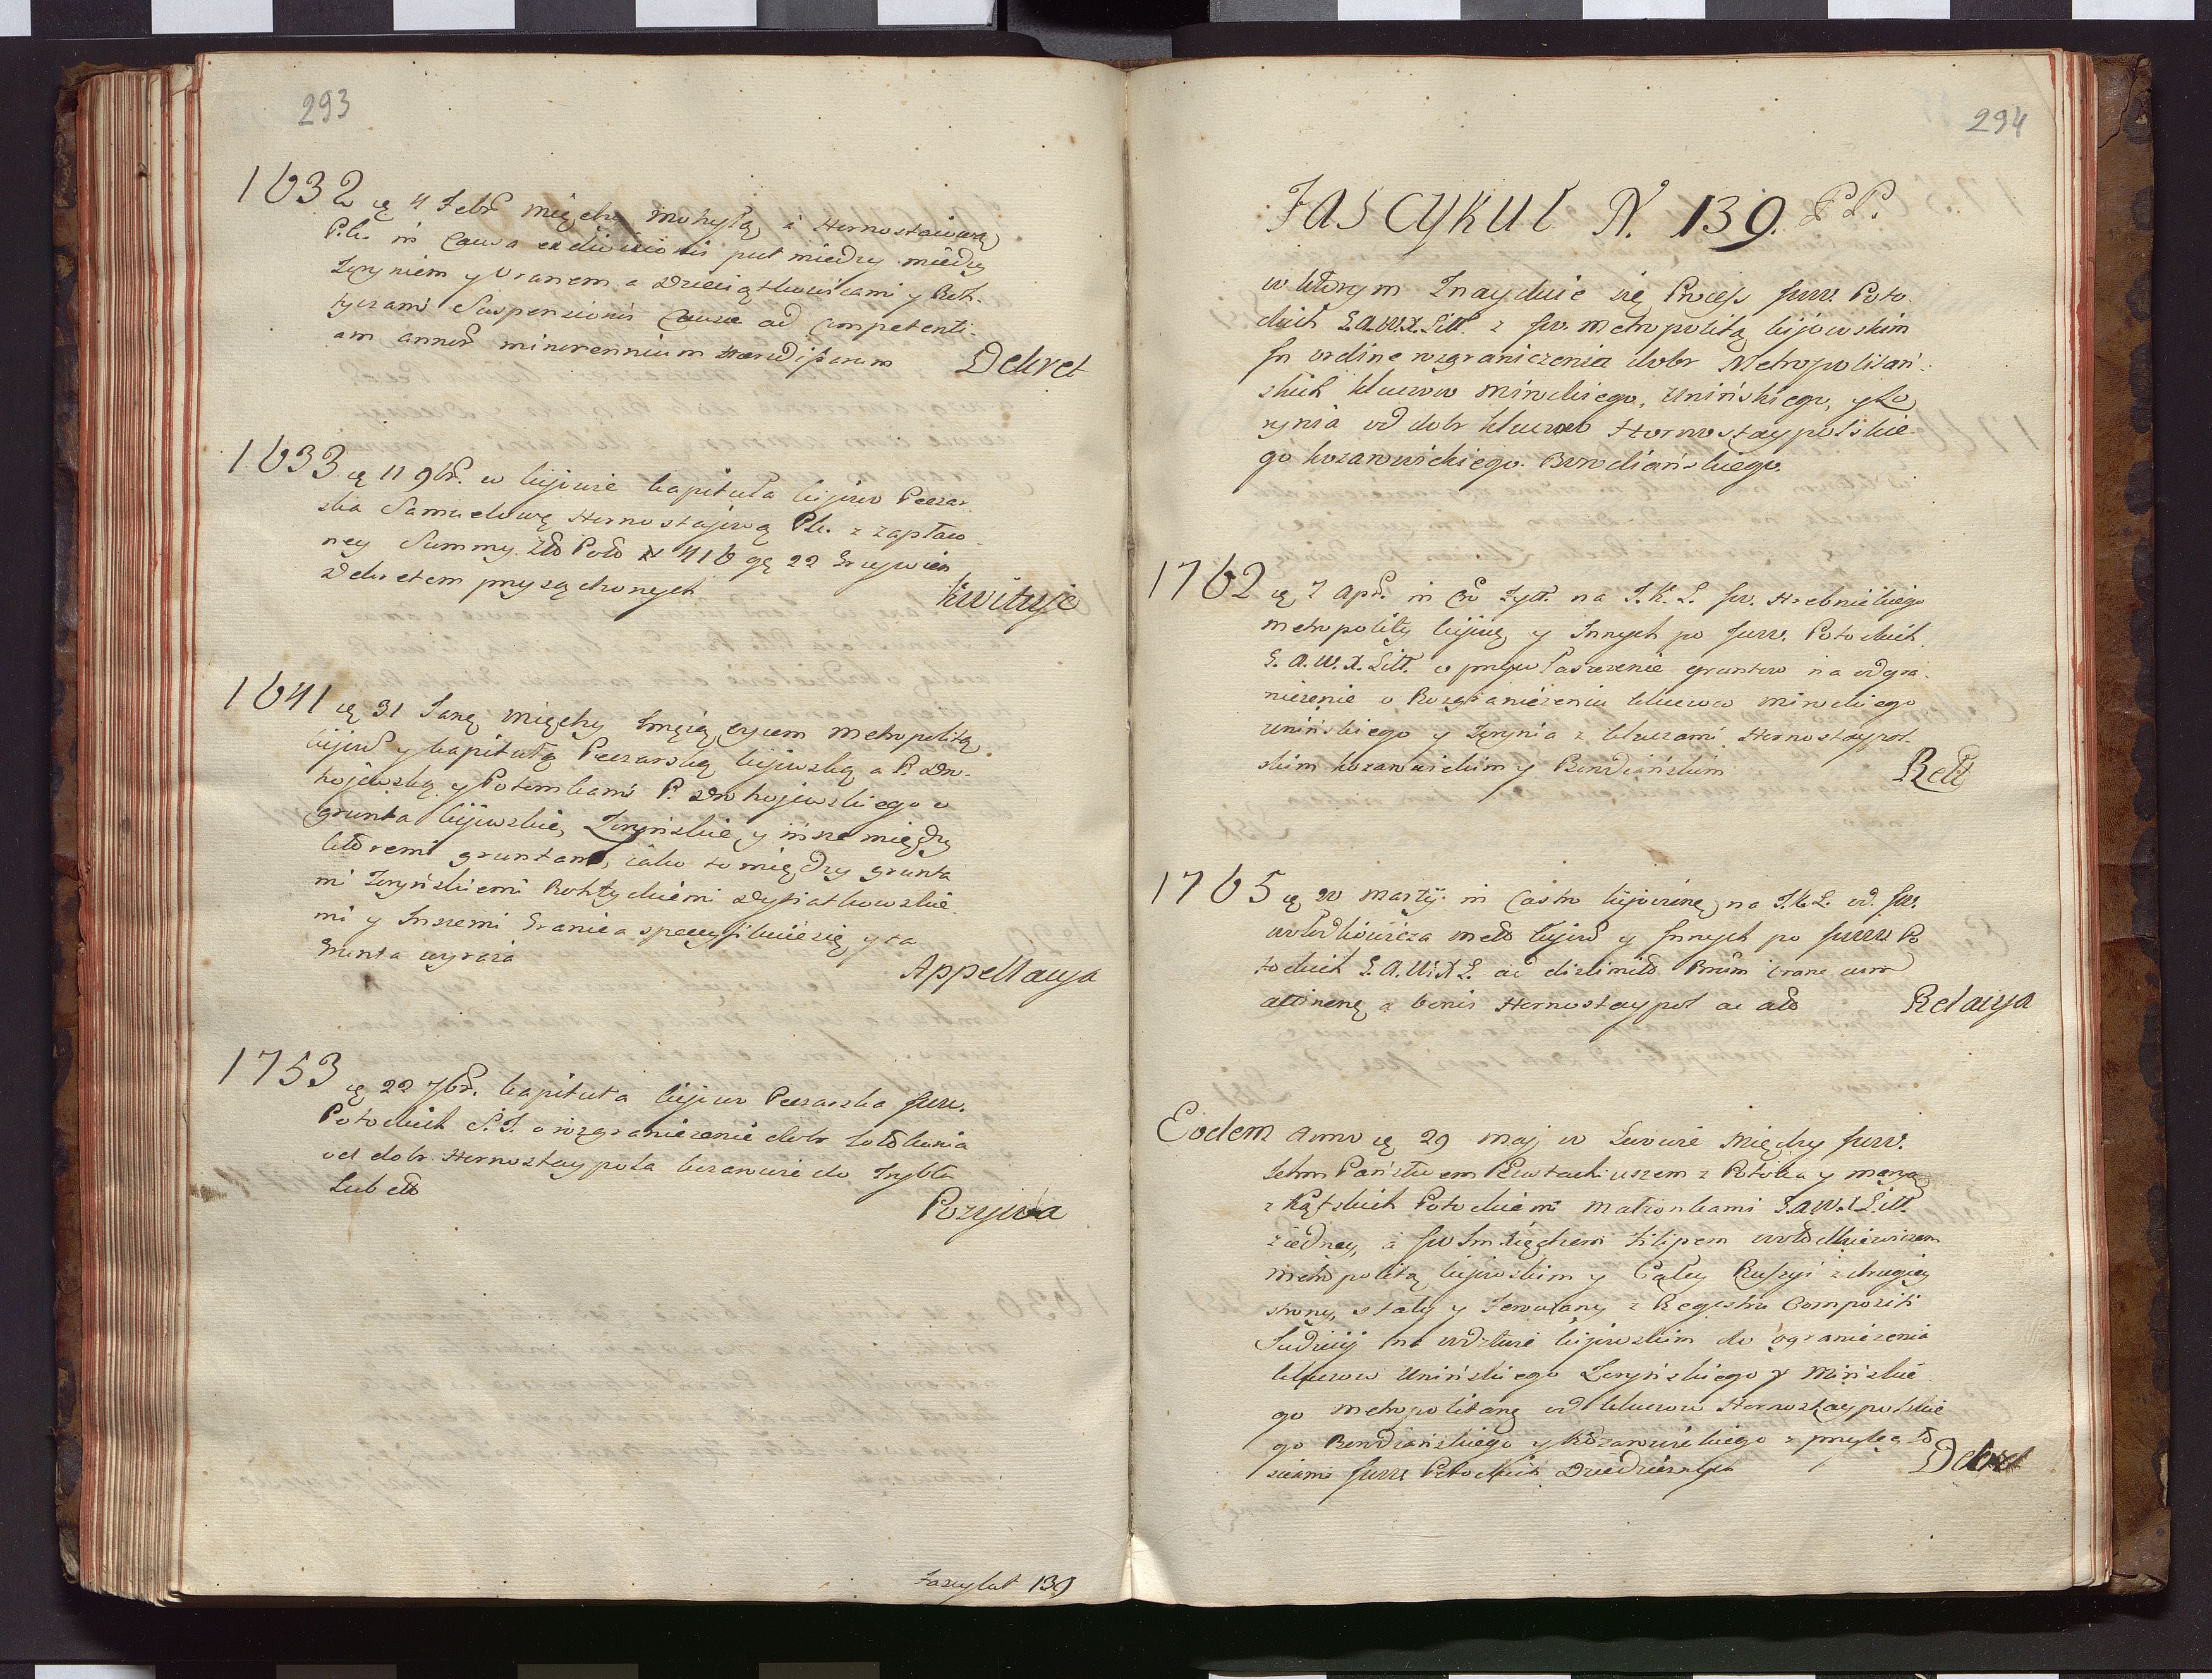 293
1632 ię 4 Febr między Mohyłą à Hornostaiową
P.k. in Causa exdivisionis put miedzy miedzy
Zoryniem y Uranem a Dzieciątkowicami y Roh-
tyczami Suspensionis Causæ ad Competenti-
am annor minorennium Hæredissarum Dekret
1633 ię 11 9br. w kijowie kapituła kijow Peczar
ska Samuelową Hornostajową Pk. z zapłaco
ney Summy Zło Pols 416 gę 22 Grzywien
Dekretem przysądzonych Kwituje
1641 ię 31 Janę między Xmęią eyem Metropolitą
kijow y kapitułą Peczarską kijowską a P. Dro-
hojewską y Potomkami P. Drohojewskiego o
grunta kijowskie, Zoryńskie y insze między
któremi gruntami, iako to między grunta
mi Zoryńskiemi Rohtyckiemi Dytiatkowskie
mi y Inszemi Granica specyfikuie się, y ta
Grunta wyraża Appellacya
1753 ię 22 7br. kapituła kijow Peczarska Jww.
Potockich S.T. o rozgraniczenie dobr
od dobr Hornostaypola kozarowic do Trybła
Lub etto Pozywa
Fascykuł 139
294
Fascykuł N. 139. P.P.
w którym Znayduie się Process Jww. Poto
ckich G.A.W.X.Litt. z Jw. Metropolitą kijowskim
In ordine rozgraniczenia dobr Metropolitań-
skich kluczow Mirockiego, Unińskiego, y Zo
rynia od dobr kluczow Hornostaypolskie
go kozarowickiego. Borodiańskiego.
1762 ię 7 Apr. in Cro Zyt. na I.K.L. Jw. Hrebnickiego
Metropolity kijow y Innych po Jww. Potockich
G.A.W.X.Litt. o przywłaszczenie gruntow na odgra-
niczenie o Rozgraniczeniu kluczow Mirockiego
Unińskiego y Zorynia z kluczami Hornostaypol
skim kozarowickim y Borodiańskim Rell
1765 ię 20 Martij in Castro kijoviens na I.K.L. od Jw.
Wołodkowicza Metr kijow y Innych po Jww. Po
tockich G.A.W.X.L. ad dislimito Bnrum
attinenę a bonis Hornostaypol ac alb Relacya
Eodem Anno ię 29 Maj w Lwowie między Jww.
Ichm Państwem Eustachiuszem z Potoka y Maryą
z Kątskich Potockiemi Małzonkami G.A.W.X.Litt.
z iedney, à Jw Im Xiędzem Filipem Wołodkiewiczem
Metropolitą kijowskim y Całey Russyi z drugiey
strony, stały y ferowany z Regestru Compositi
Judicij na Wdztwie kijowskim do ograniczenia
kluczow Unińskiego Zoryńskiego y Mirskie
go Metropolitanę od kluczow Hornostaypolskie
go Borodziańskiego y Kozarowickiego z przyległo
sciami Jww. Potockich Dziedzicznych Dekret